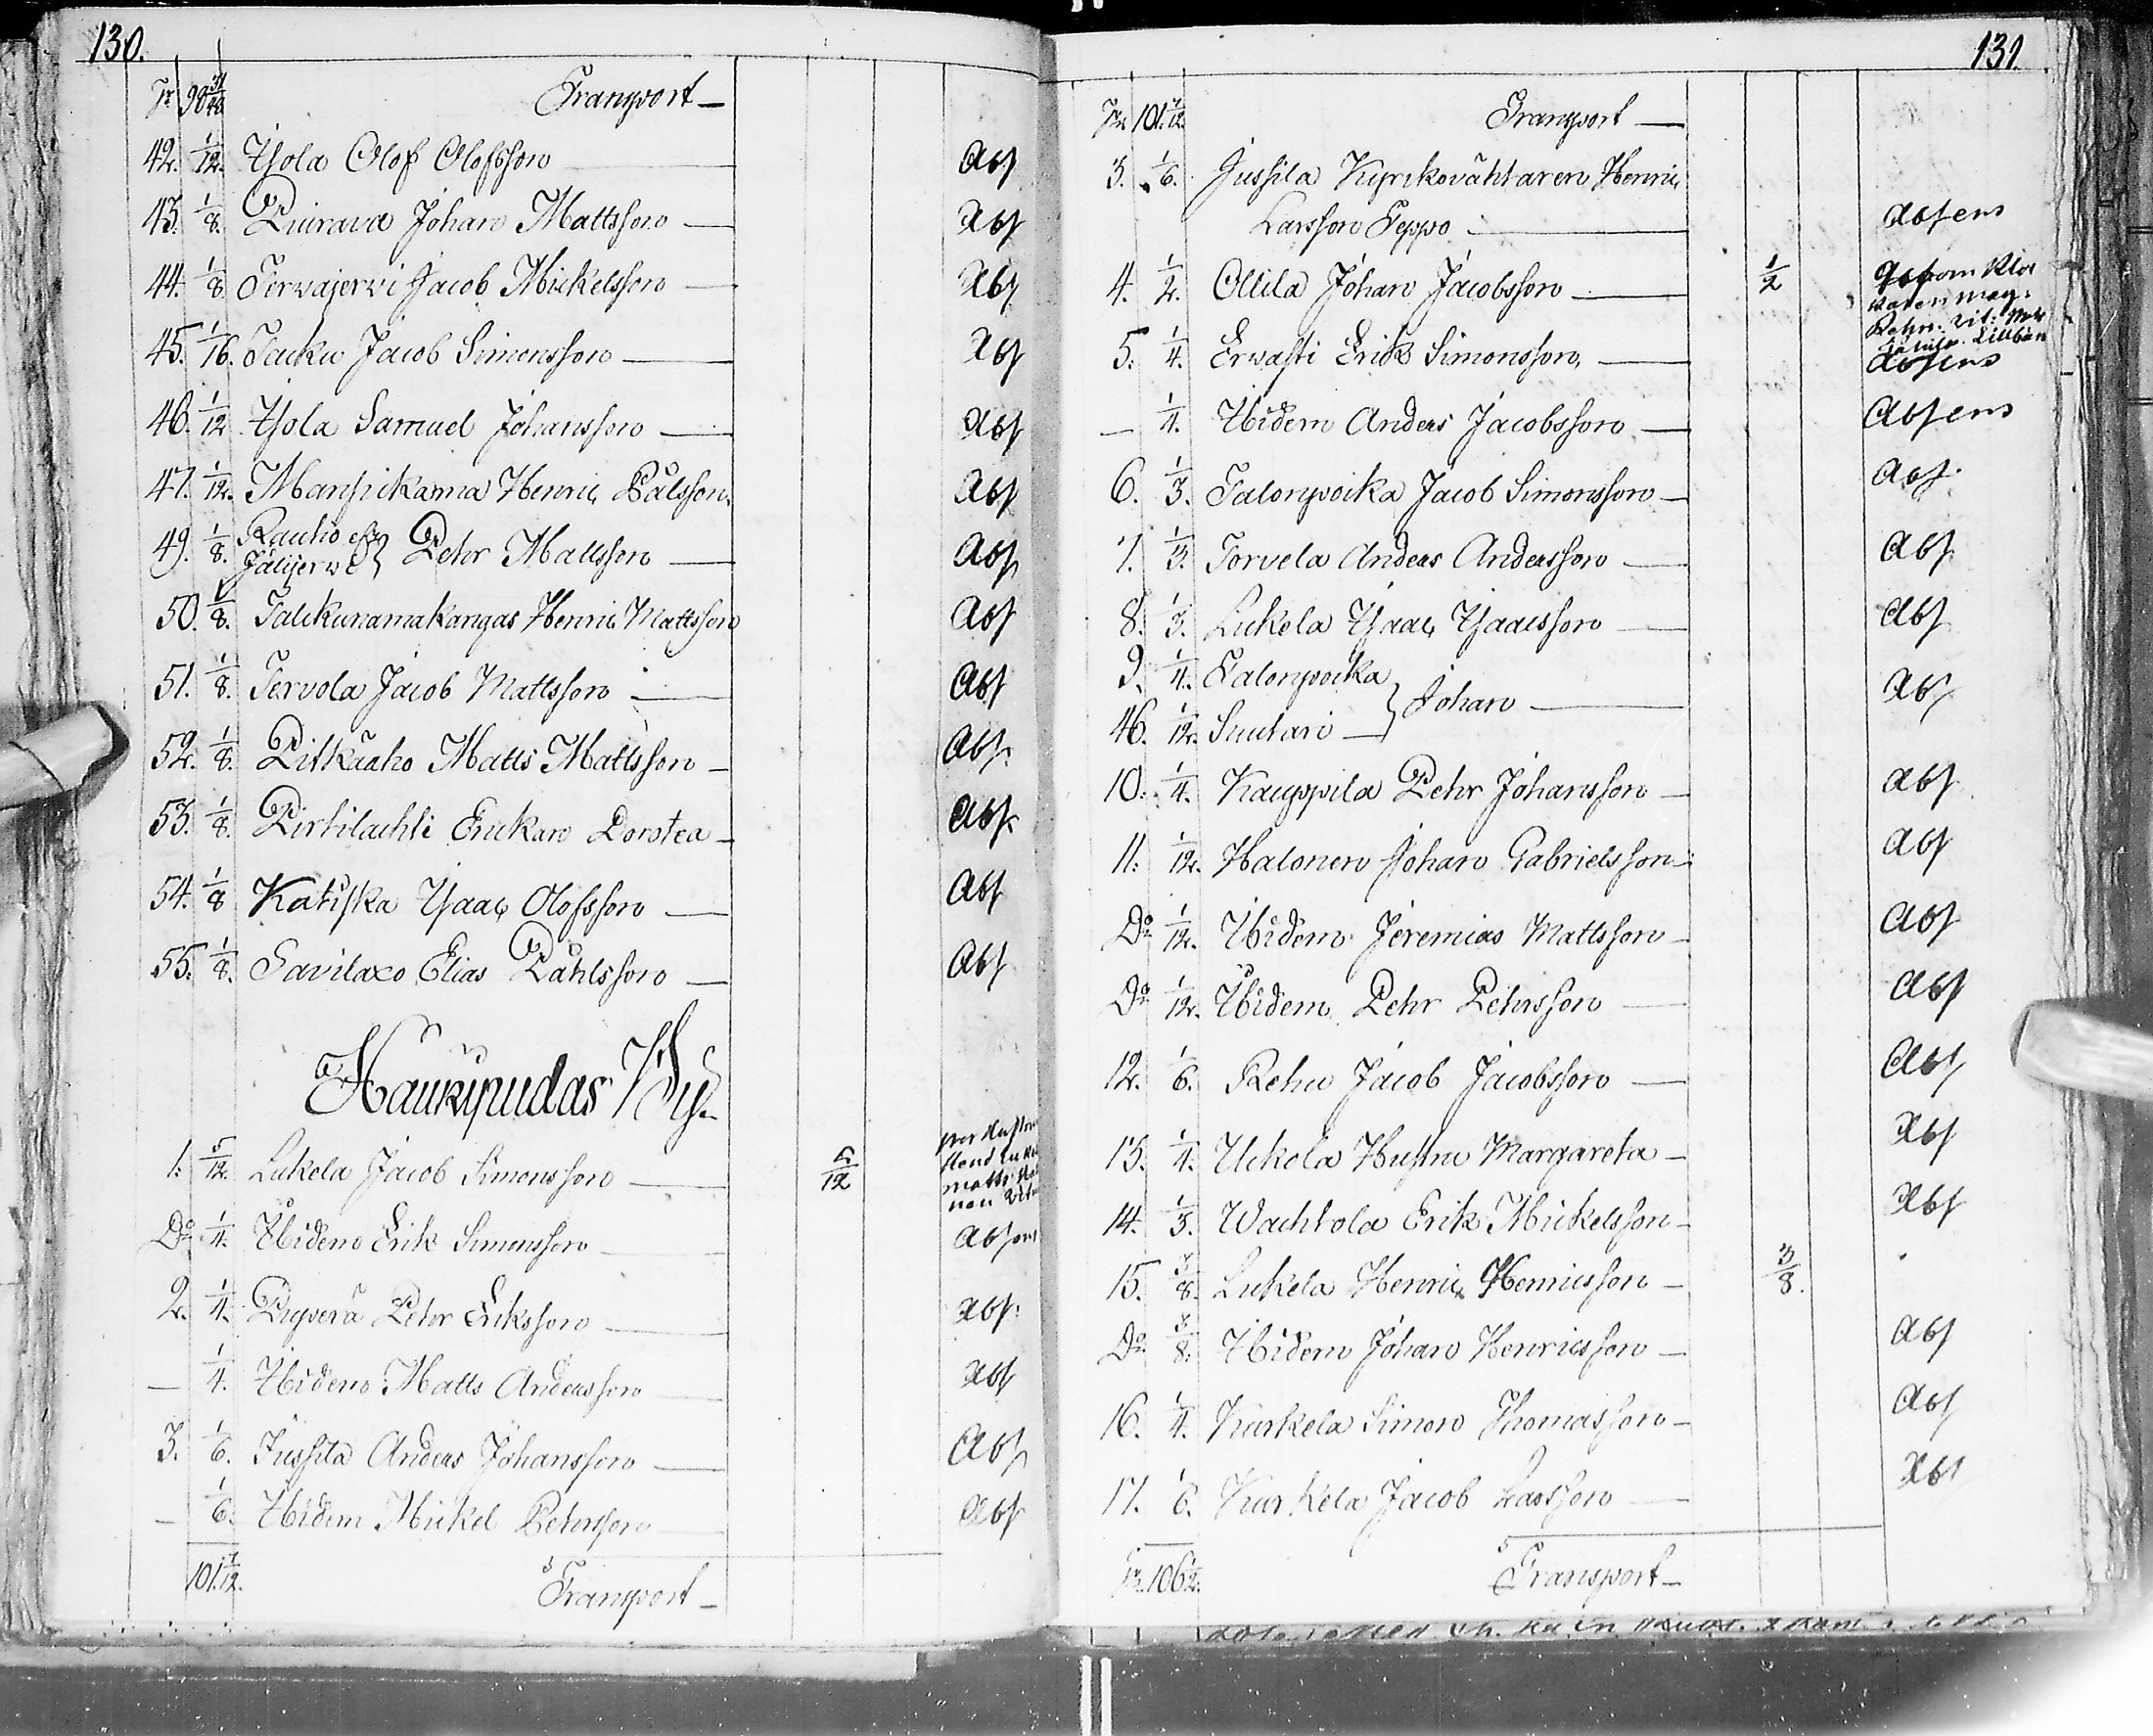 130.
Tr 98 31/48 Transport —
42. 1/12. Yjola Olof Olofsson Abs
43. 1/8. Quirava Johan Mattsson — Abs
44. 1/8. Tervajervi Jacob Mickelsson — Abs
45. 1/16. Jauku Jacob Simonsson — Abs
46. 1/12 Yjola Samuel Johansson — Abs
47. 1/12. Mansikama Henric Pålsson Abs
49. 1/8. Rauhio
Jälijerwi } Pehr Mattsson — Abs
50. 1/8. Talikunamakangas Henric Mattsson Abs
51. 1/8. Tervola Jacob Mattsson — Abs
52. 1/8. Pitkäaho Matts Mattsson — Abs.
53. 1/8. Pirtilachti Enckan Dorotea — Abs
54. 1/8 Katiska Isaac Olofsson — Abs
55. 1/8. Savilaxo Elias Påhlsson — Abs
Haukipudas By.
1. 5/12. Lukela Jacob Simonsson — 5/12
Do 1/4. Ibidem Erik Simonsson — Absens
2. 1/4. Pyyerä Pehr Eriksson — Abs:
— 1/4. Ibidem Matts Andersson — Abs
3. 1/6. Jussila Anders Johansson — Abs
— 1/6. Ibidem Mickel Pehrsson — Abs
101 7/12. Transport —
131.
Tr 101 7/12. Transport —
3. 1/6. Jussila Kyrckovähtaren Henric
Larsson Seppo — Absens
4. 1/2. Ollila Johan Jacobsson — 1/2 Genom Kloc
5. 1/4. Ervasti Erik Simonsson, — Absens
— 1/4. Ibidem Anders Jacobsson — Absens
6. 1/3. Talonpoika Jacob Simonsson — Abs.
7. 1/3. Torvela Anders Andersson — Abs
8. 1/3. Lukela Isaac Isaacsson — Abs
9. 1/4. Talonpoika
46. 1/12. Suutari — } Johan — Abs
10. 1/4. Kauppila Pehr Johansson — Abs
11. 1/12. Halonen Johan Gabrielsson — Abs
Do 1/12. Ibidem Jeremias Mattsson — Abs
Do 1/12. Ibidem Pehr Pehrsson — Abs
12. 1/6. Rehu Jacob Jacobsson — Abs
13. 1/4. Uckola Hustru Margareta — Abs
14. 1/3. Wachtola Erik Mickelsson — Abs
15. 3/8. Lukela Henric Henricsson — 3/8.
Do 3/8. Ibidem Johan Henricsson — Abs
16. 1/4. Kurkela Simon Thomasson — Abs
17. 1/6. Kurkela Jacob Larsson — Abs
Tr. 106 1/2. Transport —